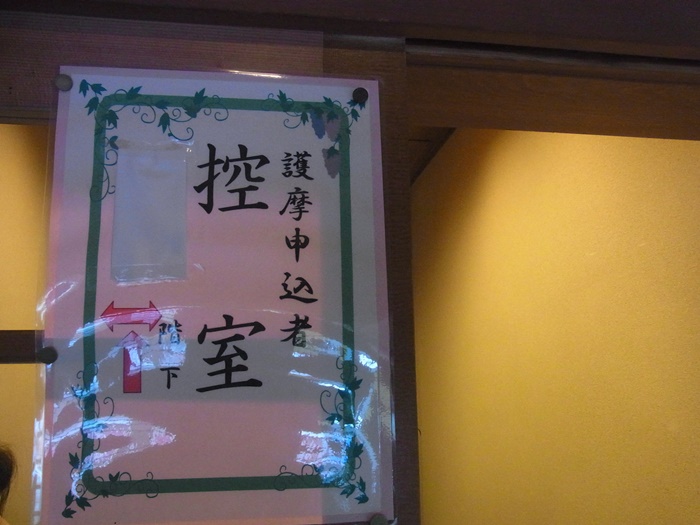 護摩申込者
控室
階下